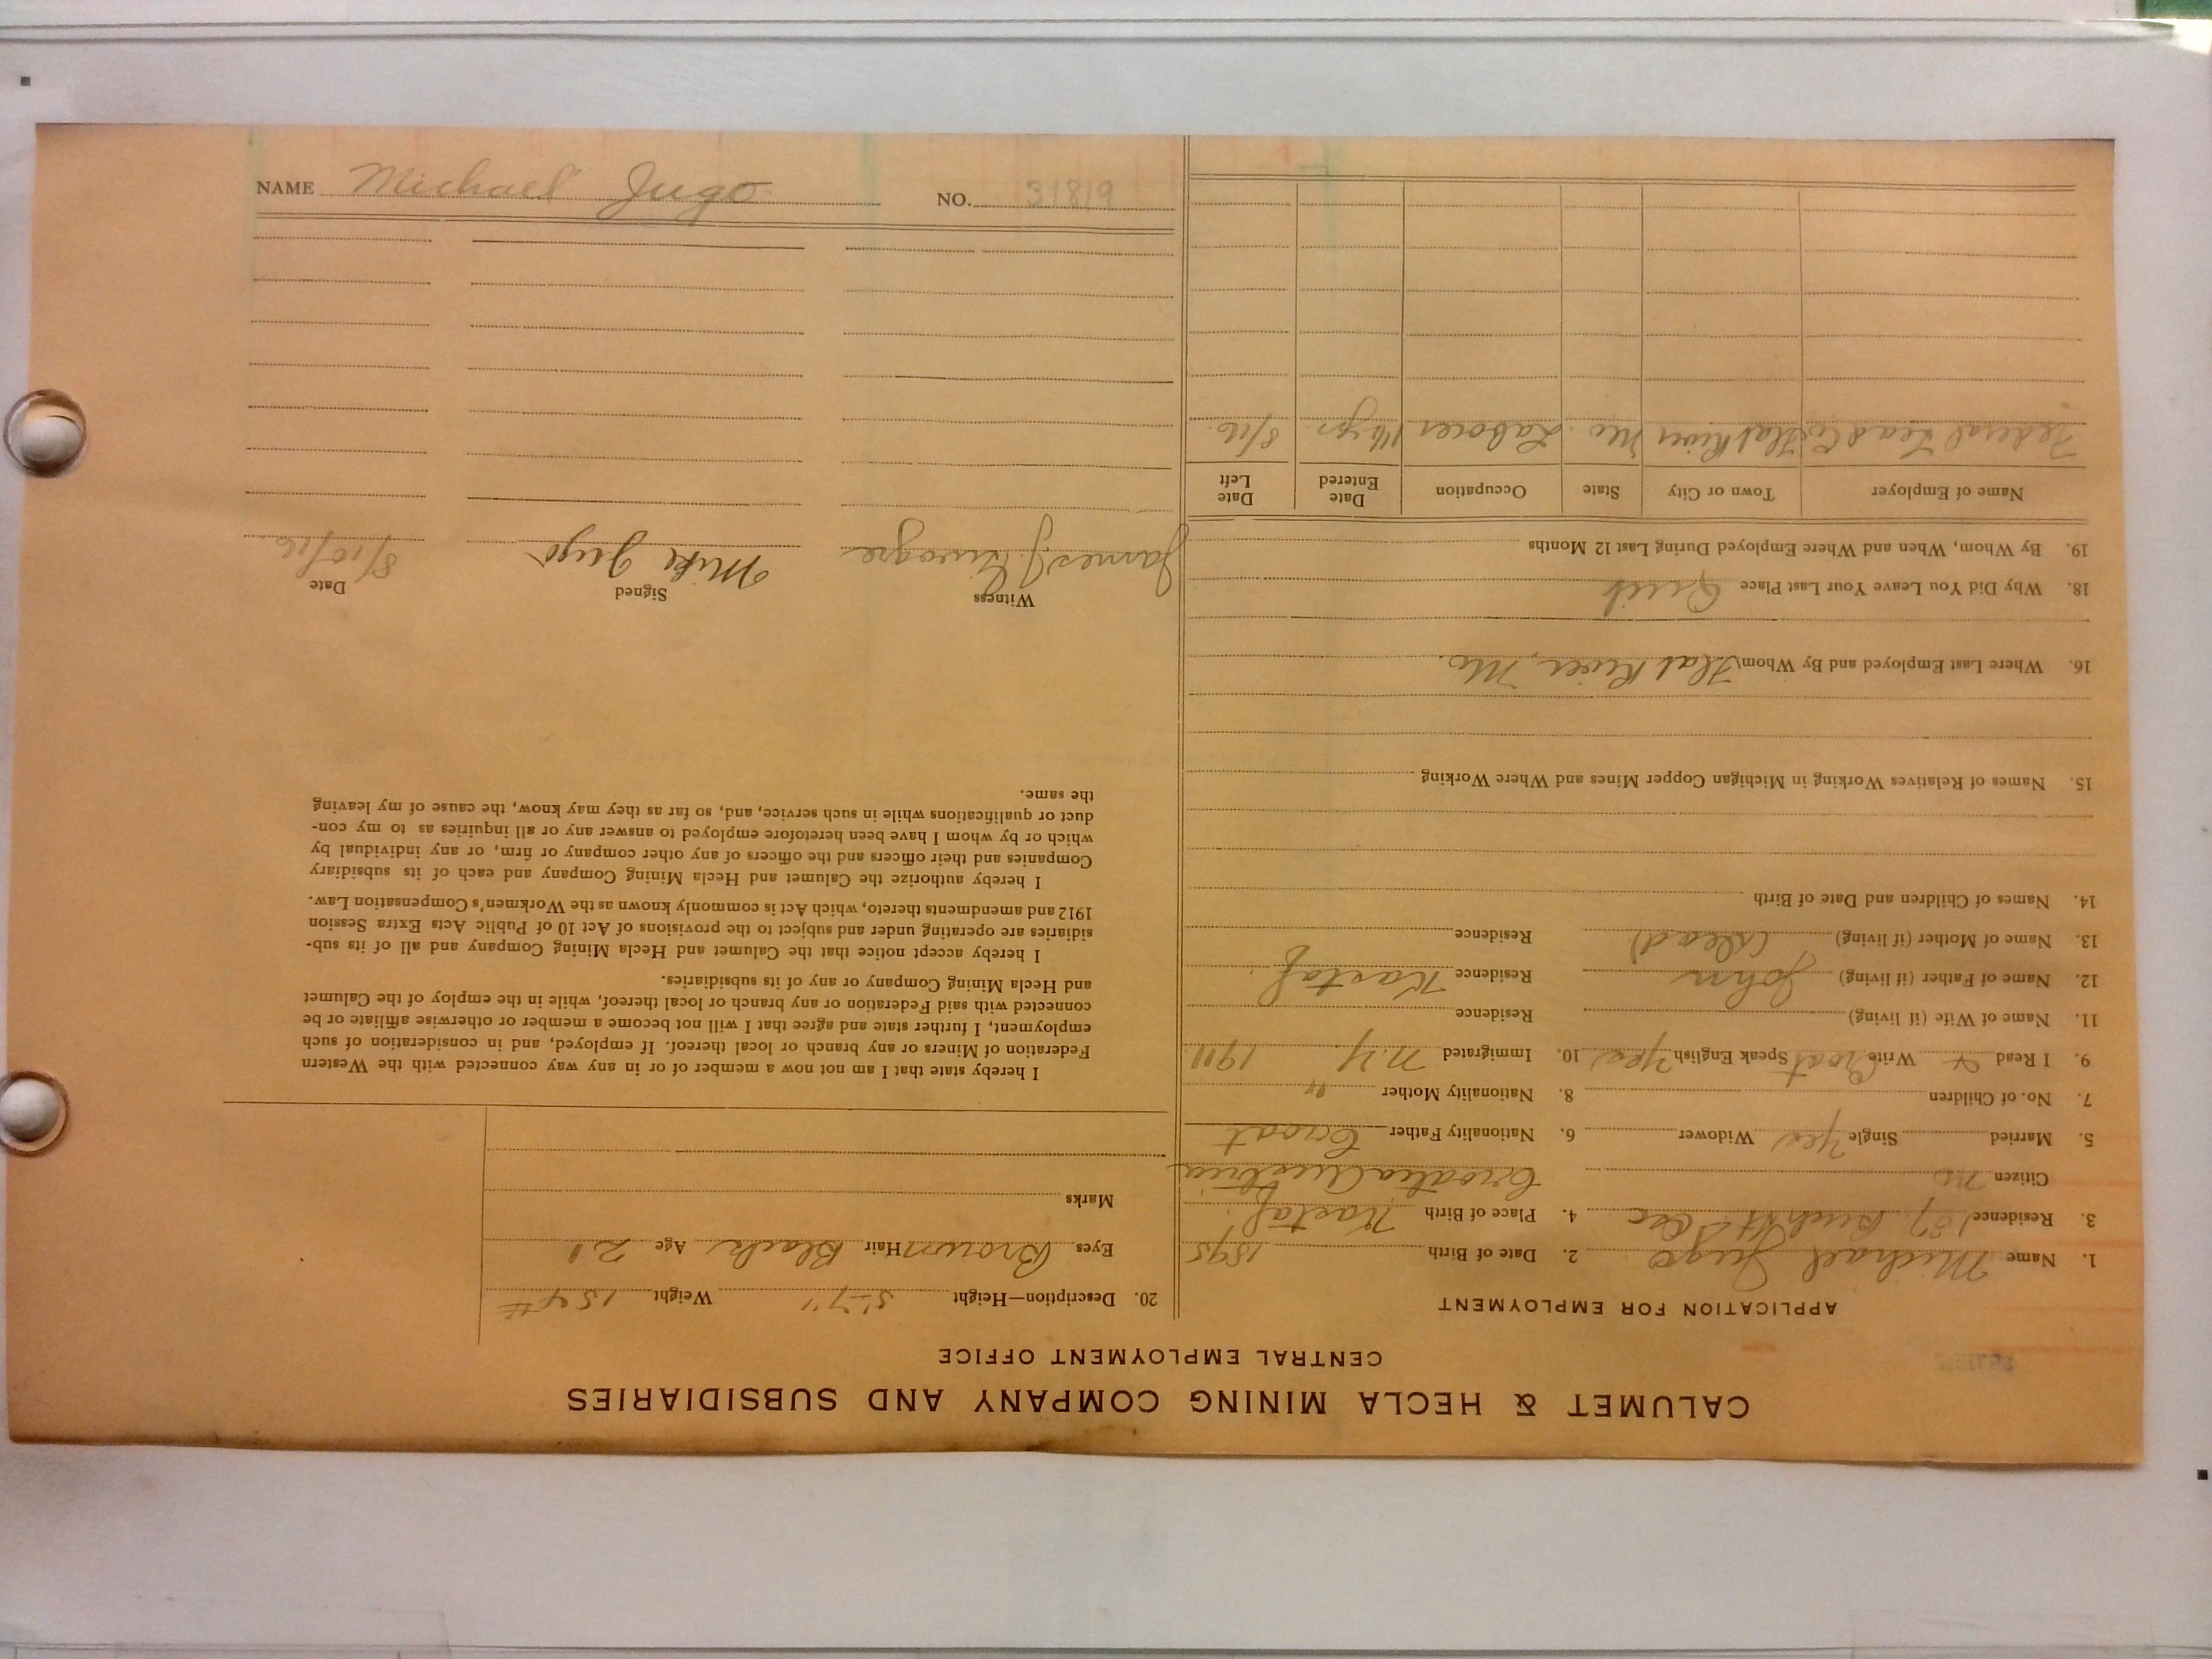 CALUMET & HECLA MINING COMPANY AND SUBSIDIARIES
CENTRAL EMPLOYMENT OFFICE
APPLICATION FOR EMPLOYMENT
1. Name Michael Jugo 2. Date of Birth 1895
3. Residence 4. Place of Birth Kastaf
Citizen no Croatia Austria
5. Married Single Yes Widower 6. Nationality Father Croat
7. No. of Children 8. Nationality Mother "
9. I Read & Write Croat Speak English Yes 10. Immigrated N.Y. 1911
11. Name of Wife (if living) Residence
12. Name of Father (if living) John Residence Kastaf
13. Name of Mother (if living) (dead) Residence
14. Names of Children and Date of Birth
15. Names of Relatives Working in Michigan Copper Mines and Where Working
16. Where Last Employed and By Whom Flat River, Mo.
18. Why Did You Leave Your Last Place Quit
19. By Whom, When and Where Employed During Last 12 Months
Name of Employer Town or City State Occupation Date Entered Date Left
Federal Lead Co Flat River Mo. Laborer yrs. 8/16.
20. Description—Height 5'-7" Weight 154#
Eyes Brown Hair Black Age 21
Marks
I hereby state that I am not now a member of or in any way connected with the Western
Federation of Miners or any branch or local thereof. If employed, and in consideration of such
employment, I further state and agree that I will not become a member or otherwise affiliate or be
connected with said Federation or any branch or local thereof, while in the employ of the Calumet
and Hecla Mining Company or any of its subsidiaries.
I hereby accept notice that the Calumet and Hecla Mining Company and all of its sub-
sidiaries are operating under and subject to the provisions of Act 10 of Public Acts Extra Session
1912 and amendments thereto, which Act is commonly known as the Workmen's Compensation Law.
I hereby authorize the Calumet and Hecla Mining Company and each of its subsidiary
Companies and their officers and the officers of any other company or firm, or any individual by
which or by whom I have been heretofore employed to answer any or all inquiries as to my con-
duct or qualifications while in such service, and, so far as they may know, the cause of my leaving
the same.
Witness Signed Date
James J. Mike Jugo 8/10/16
NAME Michael Jugo NO. 31819